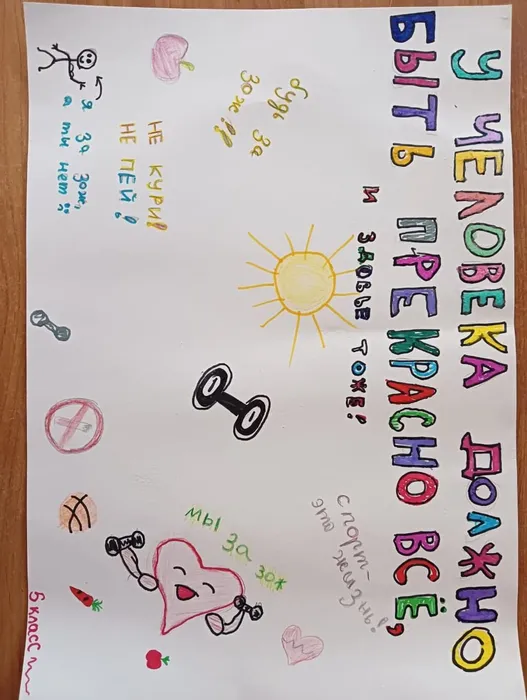 У ЧЕЛОВЕКА ДОЛЖНО
БЫТЬ ПРЕКРАСНО ВСЁ,
И ЗДОВЬЕ ТОЖЕ!
будь за
зож!!
НЕ КУРИ!
НЕ ПЕЙ!
Я за зож,
а ты нет
спорт-
это жизнь!
мы за зож
5 класс